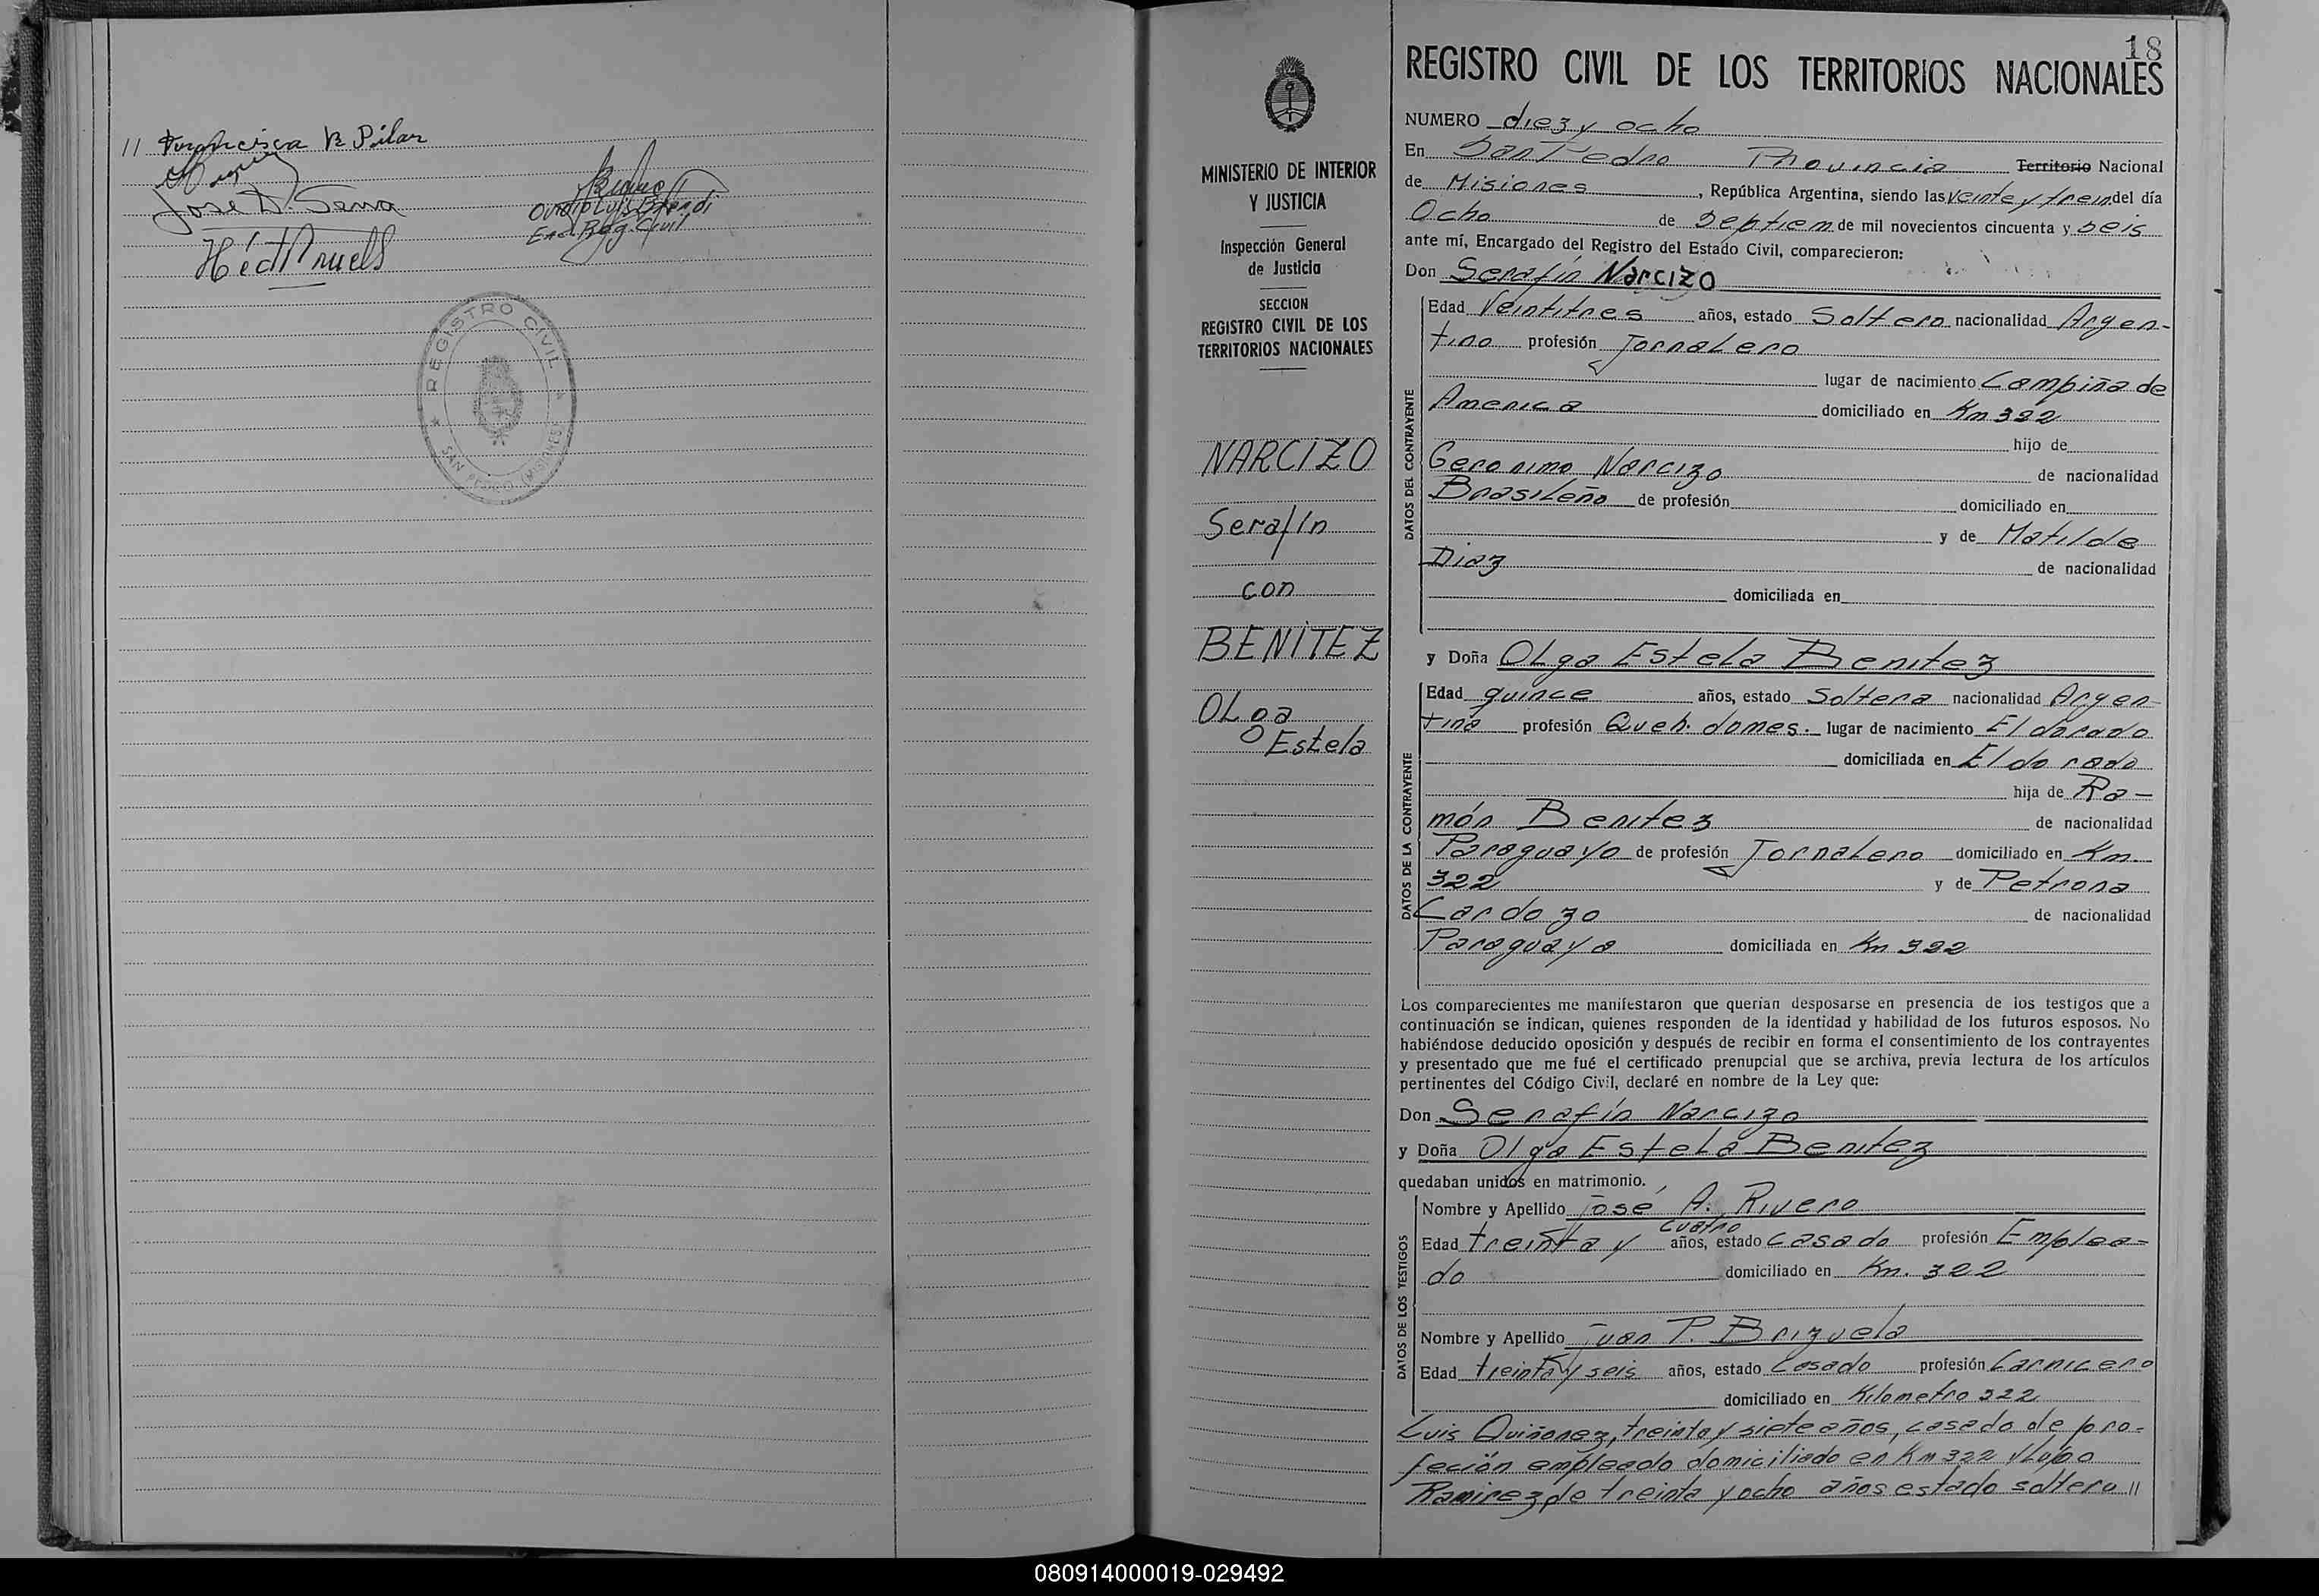 // Francisca R Pilar
José D. Sena
Ovidio Luis
Enc. Reg. Civil
REGISTRO CIVIL
SAN PEDRO (MISIONES)
18
REGISTRO CIVIL DE LOS TERRITORIOS NACIONALES
MINISTERIO DE INTERIOR
Y JUSTICIA
Inspección General
de Justicia
SECCION
REGISTRO CIVIL DE LOS
TERRITORIOS NACIONALES
NARCIZO
Serafín
con
BENITEZ
OLga
Estela
NUMERO diez y ocho
En San Pedro Provincia Territorio Nacional
de Misiones, República Argentina, siendo las veinte y trein del día
Ocho de Septiem de mil novecientos cincuenta y seis
ante mí, Encargado del Registro del Estado Civil, comparecieron:
Don Serafín Narcizo
DATOS DEL CONTRAYENTE
Edad Veintitres años, estado Soltero nacionalidad Argen-
tino profesión Jornalero
lugar de nacimiento Campiña de
America domiciliado en Km 322
hijo de
Geronimo Narcizo de nacionalidad
Brasileño de profesión domiciliado en
y de Matilde
Diaz de nacionalidad
domiciliada en
y Doña OLga Estela Benitez
DATOS DE LA CONTRAYENTE
Edad quince años, estado Soltera nacionalidad Argen-
tina profesión Queh. domes. lugar de nacimiento El dorado
domiciliada en El do rado
hija de Ra-
món Benitez de nacionalidad
Paraguayo de profesión Jornalero domiciliado en Km.
322 y de Petrona
Cardozo de nacionalidad
Paraguaya domiciliada en Km 322
Los comparecientes me manifestaron que querían desposarse en presencia de los testigos que a
continuación se indican, quienes responden de la identidad y habilidad de los futuros esposos. No
habiéndose deducido oposición y después de recibir en forma el consentimiento de los contrayentes
y presentado que me fué el certificado prenupcial que se archiva, previa lectura de los artículos
pertinentes del Código Civil, declaré en nombre de la Ley que:
Don Serafín Narcizo
y Doña Olga EsteLa Benitez
quedaban unidos en matrimonio.
DATOS DE LOS TESTIGOS
Nombre y Apellido José A. Rivero
cuatro
Edad treinta y años, estado casado profesión Emplea-
do domiciliado en Km. 322
Nombre y Apellido Juan P. Brizuela
Edad treinta y seis años, estado Casado profesión Carnicero
domiciliado en Kilometro 322
Luis Quiñonez, treinta y siete años, casado de pro-
feción empleado domiciliado en Km 322 y Lupo
Ramirez de treinta y ocho años estado soltero //
080914000019-029492